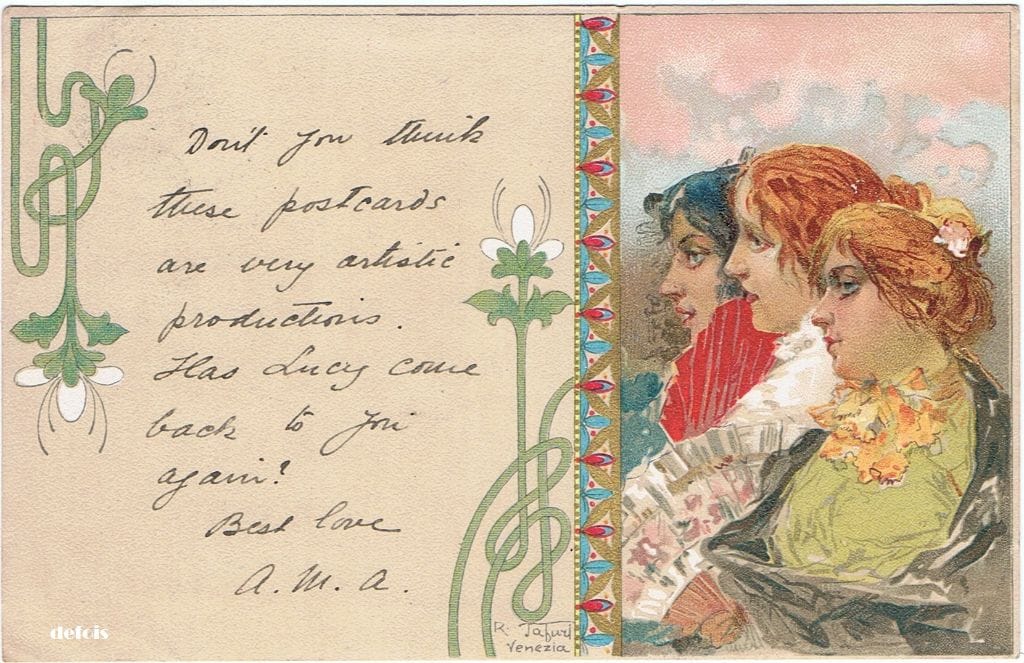 Don't you think
these postcards
are very artistic
productions.
Has Lucy come
back to you
again?
Best love
A. M. A.
R. Tafuri
Venezia
defois